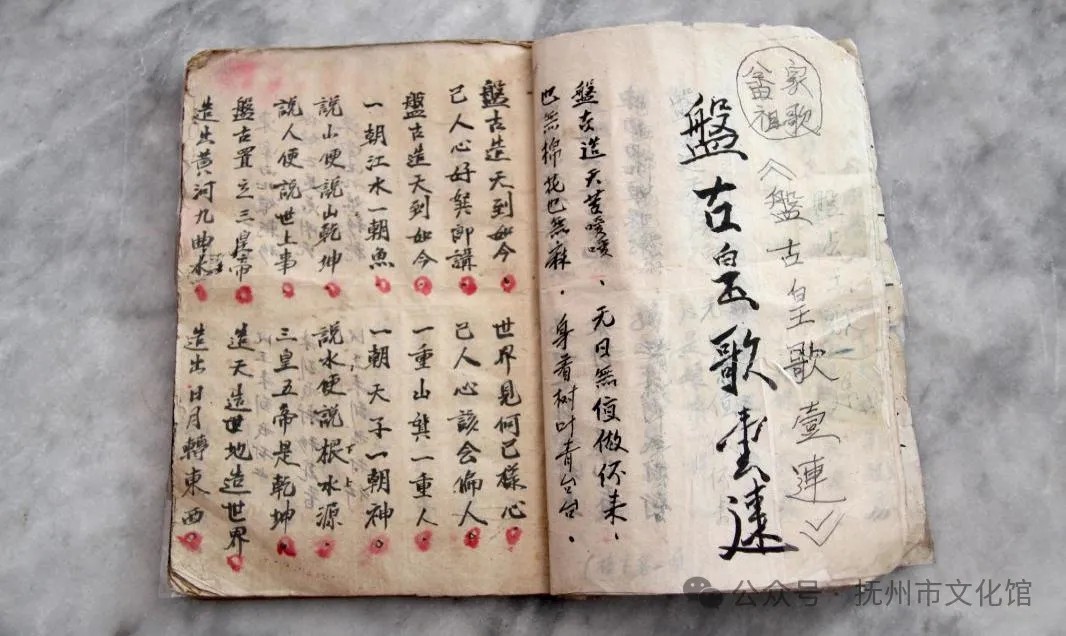 畲家
祖歌
《盤古皇歌壹連》
盤古皇歌壹連
盤古造天苦噯噯、无日無做伓来、
也無棉花也無麻。身着树叶青台台。
盤古造天到如今。世界見何已樣心。
己人心好龔郎講。己人心該会偏人。
盤古造天到如今。一重山龔一重人。
一朝江水一朝魚。一朝天子一朝神。
説山便説山乾坤。説水便説根水源。
説人便説世上事。三皇五帝是乾坤。
盤古置立三皇帝。造天造地造世界。
造出黄河九曲水。造出日月轉東西。
公众号·抚州市文化馆